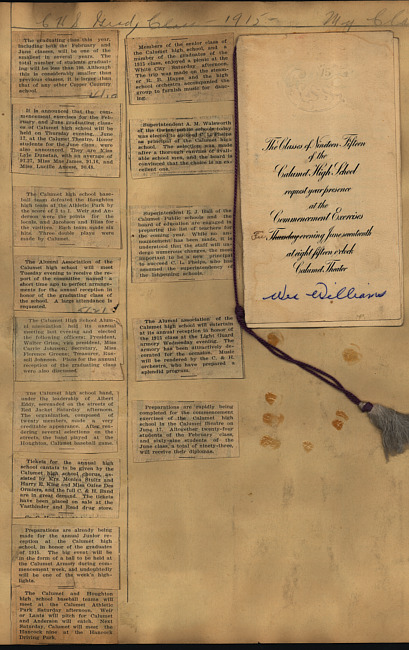 C.H.S. Class 1915 - My
The graduating class this year,
including both the February and
June classes, will be one of the
smallest in several years. The
total number of students graduat-
ing will be less than 100. Although
this is considerably smaller than
previous classes, it is larger than
that of any other Copper Country
school.
It is announced that the com-
mencement exercises for the Feb-
ruary and June graduating class-
es of Calumet high school will be
held on Thursday evening, June
17, at the Calumet Theatre. Honor
students for the June class, were
also announced. They are Miss
Lyle Dunstan, with an average of
and Miss
Lucille
The Calumet high school base-
ball team defeated the Houghton
high team at the Athletic Park by
the score of 3 to 1. Weir and An-
derson were the points for the
locals, and Jacobson and Bliss for
the visitors. Each team made six
hits. Three double plays were
made by Calumet.
The Alumni Association of the
Calumet high school will meet
Tuesday evening to receive the re-
port of the committee named a
short time ago to perfect arrange-
ments for the annual reception in
honor of the graduating class of
the school. A large attendance is
requested.
The Calumet High School Alum-
ni association held its annual
meeting last evening and elected
the following officers: President,
Walter Gries, vice president, Miss
Carrie Johnson; Secretary, Miss
Florence Grosse; Treasurer, Rus-
sell Johnson. Plans for the annual
reception of the graduating class
were also discussed.
The Calumet high school band,
under the leadership of Albert
Eddy, serenaded on the streets of
Red Jacket Saturday afternoon.
The organization, composed of
twenty members, made a very
creditable appearance. After ren-
dering several selections on the
streets, the boys played at the
Houghton, Calumet baseball game.
Tickets for the annual high
school cantata to be given by the
Calumet high school chorus, as-
sisted by Mrs. Monica Stultz and
Harry E. King and Miss Oaise Des
Orniers, and the full C. & H. Band
are in great demand. The tickets
have been placed on sale at the
Vastbinder and Read drug store.
Preparations are already being
made for the annual Junior re-
ception at the Calumet high
school, in honor of the graduates
of 1915. The big event will be
in the form of a ball to be held at
the Calumet Armory during com-
mencement week, and undoubtedly
will be one of the week's high-
lights.
The Calumet and Houghton
high school baseball teams will
meet at the Calumet Athletic
Park Saturday afternoon. Weir
or Lanto will pitch for Calumet
and Anderson will catch. Next
Saturday, Calumet will meet the
Hancock nine at the Hancock
Driving Park.
Members of the senior class of
the Calumet high school, and a
number of the graduates of the
1915 class, enjoyed a picnic at the
White City Saturday afternoon.
The trip was made on the steam-
er R. B. Hayes and the high
school orchestra accompanied the
group to furnish music for danc-
ing.
Superintendent A. M. Walsworth
of the public schools today
was
as principal of the Calumet high
school. The selection was made
after a thorough canvass of avail-
able school men, and the board is
convinced that the choice is an ex-
cellent one.
Superintendent H. J. Hall of the
Calumet Public schools and the
board of education are engaged in
preparing the list of teachers for
the coming year. While no an-
nouncement has been made, it is
understood that the staff will un-
dergo numerous changes, the most
important to be a new principal
to succeed C. L. Phelps, who has
assumed the superintendency of
the Ishpeming schools.
The Alumni association of the
Calumet high school will entertain
at the annual reception in honor of
the 1915 class at the Light Guard
armory Wednesday evening. The
armory has been attractively de-
corated for the occasion. Music
will be rendered by the C. & H.
orchestra, who have prepared a
splendid program.
Preparations are rapidly being
completed for the commencement
exercises of the Calumet high
school in the Calumet theatre on
June 17. Altogether twenty-four
students of the February class,
and sixty-nine students of the
June class, a total of ninety-three,
will receive their diplomas.
The Classes of Nineteen Fifteen
of the
Calumet High School
request your presence
at the
Commencement Exercises
Thursday evening, June seventeenth
at eight fifteen o'clock
Calumet Theater
Wes Williams